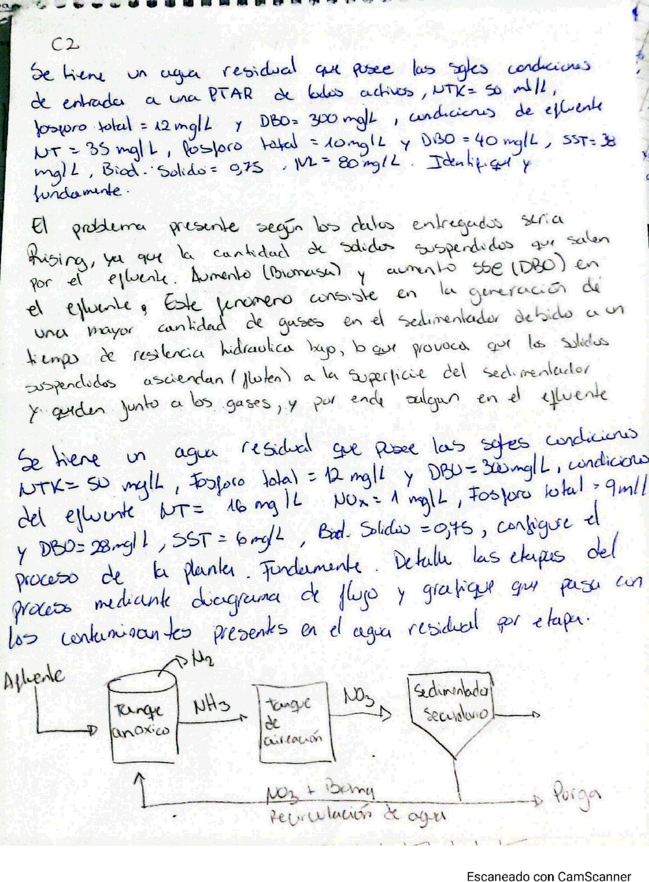 C2
Se tiene un agua residual que posee las sgtes condiciones
de entrada a una PTAR de lodos activos, NTK= 50 ml/L,
fosforo total = 12 mg/L y DBO= 300 mg/L, condiciones de efluente
NT = 35 mg/L, fosforo total = 10 mg/L y DBO = 40 mg/L, SST= 38
mg/L, Biod. Solido = 0,75, = 80 mg/L. Identifique y
fundamente.
El problema presente según los datos entregados seria
Rising, ya que la cantidad de solidos suspendidos que salen
por el efluente. Aumento (Biomasa) y aumento SSE (DBO) en
el efluente, Este fenomeno consiste en la generación de
una mayor cantidad de gases en el sedimentador debido a un
tiempo de residencia hidraulica bajo, lo que provoca que los solidos
suspendidos asciendan (floten) a la superficie del sedimentador
y queden junto a los gases, y por ende salgan en el efluente
Se tiene un agua residual que posee las sgtes condiciones
NTK= 50 mg/L, Fosforo total = 12 mg/L y DBO= 300 mg/L, condiciones
del efluente NT= 16 mg/L NOx= 1 mg/L, Fosforo total = 9 ml/
y DBO= 28 mg/L, SST= 6 mg/L, Biod. Solidos = 0,75, configure el
proceso de la planta. Fundamente. Detalle las etapas del
proceso mediante diagrama de flujo y grafique que pasa con
los contaminantes presentes en el agua residual por etapa.
Afluente
N2
Tanque
anoxico
NH3
tanque
de
aireación
NO3
Sedimentador
Secundario
NO3 +
Recirculación de agua
Purga
Escaneado con CamScanner